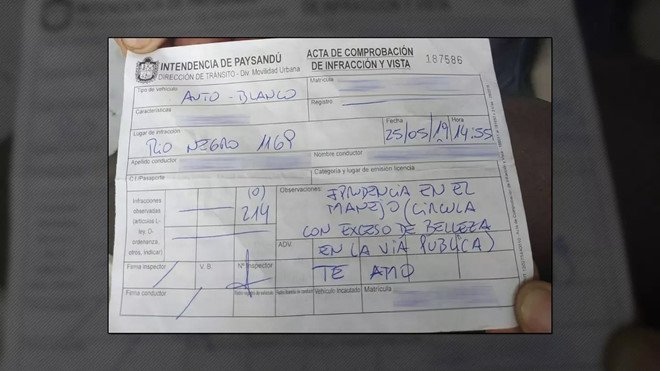 INTENDENCIA DE PAYSANDÚ
DIRECCIÓN DE TRÁNSITO - Div. Movilidad Urbana
ACTA DE COMPROBACIÓN
DE INFRACCIÓN Y VISTA
187586
Tipo de vehículo
AUTO - BLANCO
Matrícula
Características
Registro
Lugar de infracción
RIO NEGRO 1169
Fecha
25/05/19
Hora
14:55
Apellido conductor
Nombre conductor
C.I/Pasaporte
Categoría y lugar de emisión licencia
Infracciones
observadas
(artículos L-
ley, D-
ordenanza,
otros, indicar)
(O)
214
Observaciones:
IPRUDENCIA EN EL
MANEJO (CIRCULA
CON EXCESO DE BELLEZA
ADV.
EN LA VIA PUBLICA)
TE AMO
Firma inspector
V.B.
Nº Inspector
Firma conductor
Vehículo Incautado
Matrícula